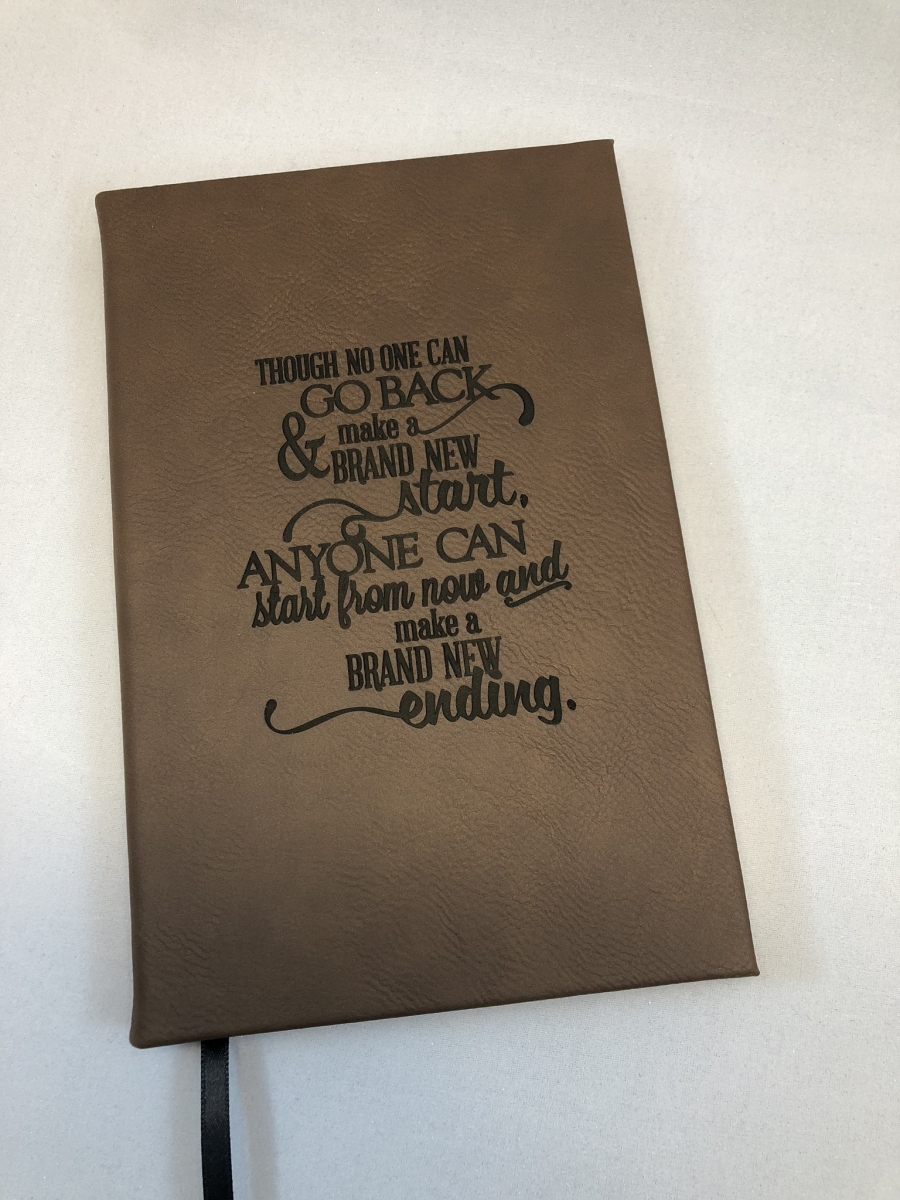 THOUGH NO ONE CAN
GO BACK
& make a
BRAND NEW
start,
ANYONE CAN
start from now and
make a
BRAND NEW
ending.